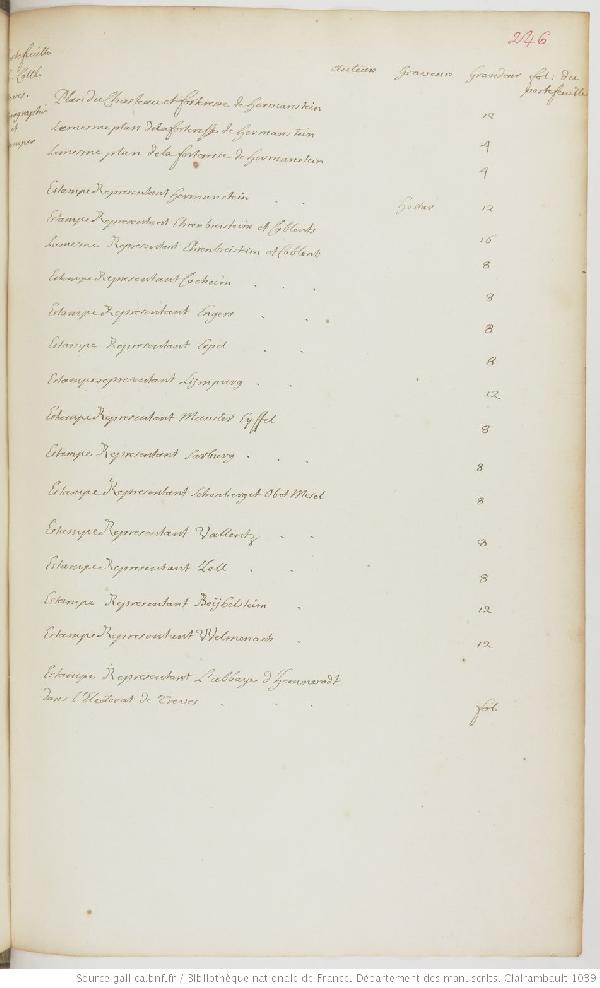 246
Auteur Graveur Grandeur fol: du
portefeuille
Plan du Chasteau et forteresse de Hermanstein 12
Le mesme plan de la forteresse de Hermanstein 4
Le mesme plan de la forteresse de Hermanstein 4
Estampe Representant Hermanstein . . Hollar 12
Estampe Representant Ehrenbreisteim et Coblents 16
Le mesme Representant Ehrenbreistim et Coblents 8
Estampe Representant Cocheim . . . 8
Estampe Representant Engers . . 8
Estampe Representant . . 8
Estampe representant Lympurg . . 12
Estampe Representant Munster Eyffel 8
Estampe Representant Sarburg . . . 8
Estampe Representant Schonberg et Obet Wesel 8
Estampe Representant Vallentz . . 8
Estampe Representant Zoll . . 8
Estampe Representant Beijhelsteim . 12
Estampe Representant Welmenach . 12
Estampe Representant L'abbaye d'
Dans l'Electorat de Treves . . . fol.
Source gallica.bnf.fr / Bibliothèque nationale de France. Département des manuscrits. Clairambault 1039